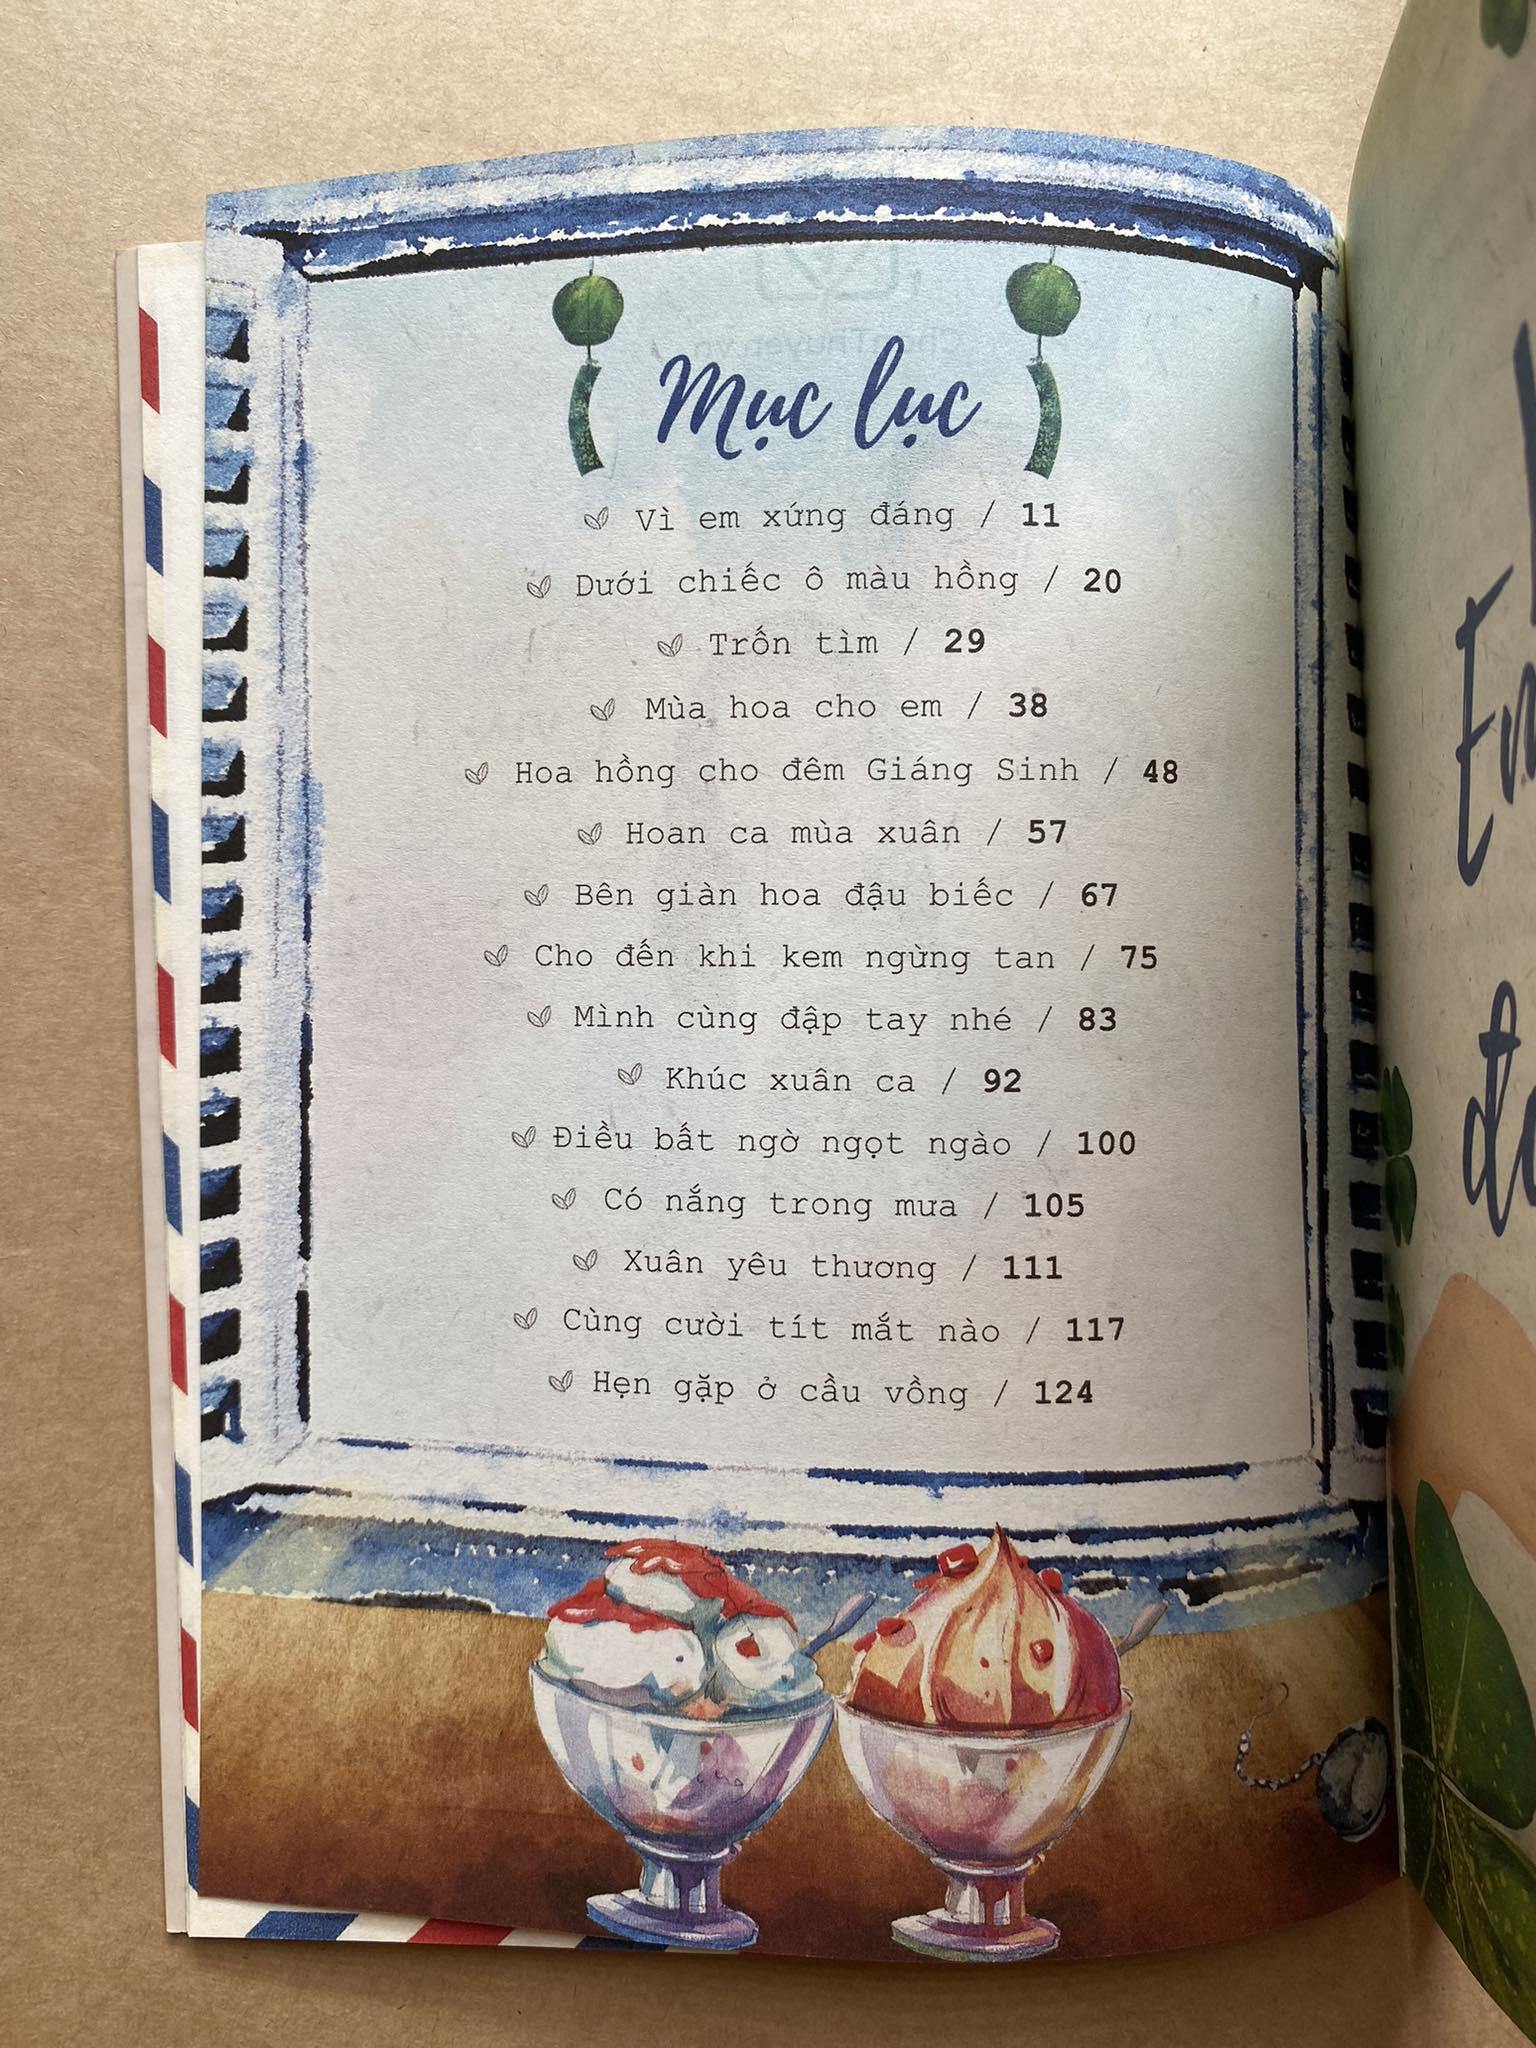 Mục lục
Vì em xứng đáng / 11
Dưới chiếc ô màu hồng / 20
Trốn tìm / 29
Mùa hoa cho em / 38
Hoa hồng cho đêm Giáng Sinh / 48
Hoan ca mùa xuân / 57
Bên giàn hoa đậu biếc / 67
Cho đến khi kem ngừng tan / 75
Mình cùng đập tay nhé / 83
Khúc xuân ca / 92
Điều bất ngờ ngọt ngào / 100
Có nắng trong mưa / 105
Xuân yêu thương / 111
Cùng cười tít mắt nào / 117
Hẹn gặp ở cầu vồng / 124